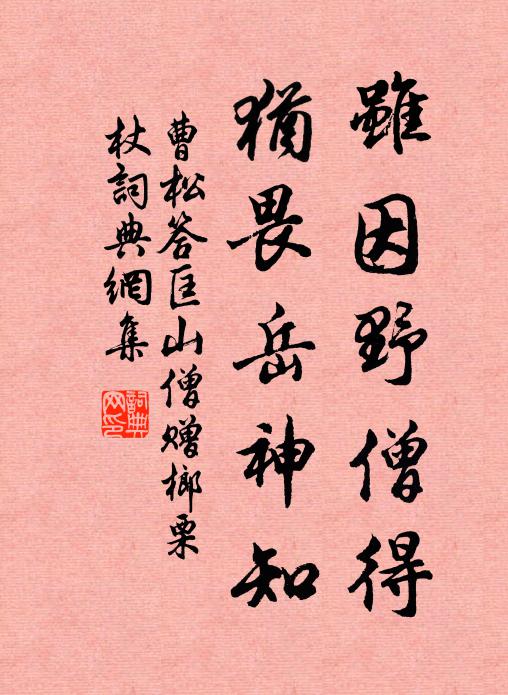 雖因野僧得
猶畏岳神知
曹松答匡山僧贈榔栗
杖詞典網集
詞典
网印